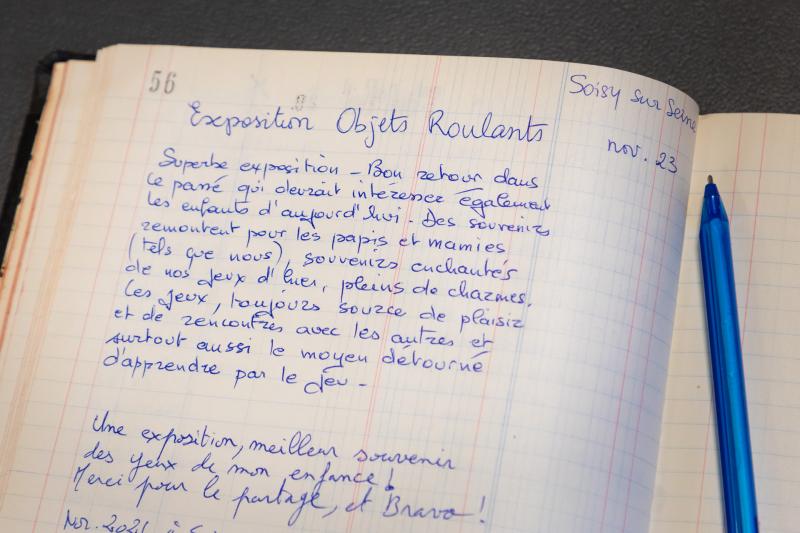 56
Soisy sur Seine
nov. 23
Exposition Objets Roulants
Superbe exposition - Bon retour dans
le passé qui devrait intéresser également
les enfants d'aujourd'hui. Des souvenirs
remontent pour les papis et mamies
(tels que nous), souvenirs enchantés
de nos jeux d'hier, pleins de charmes.
Les jeux, toujours source de plaisir
et de rencontres avec les autres et
surtout aussi le moyen détourné
d'apprendre par le jeu -
Une exposition, meilleur souvenir
des yeux de mon enfance !
Merci pour le partage, et Bravo !
Nov. à